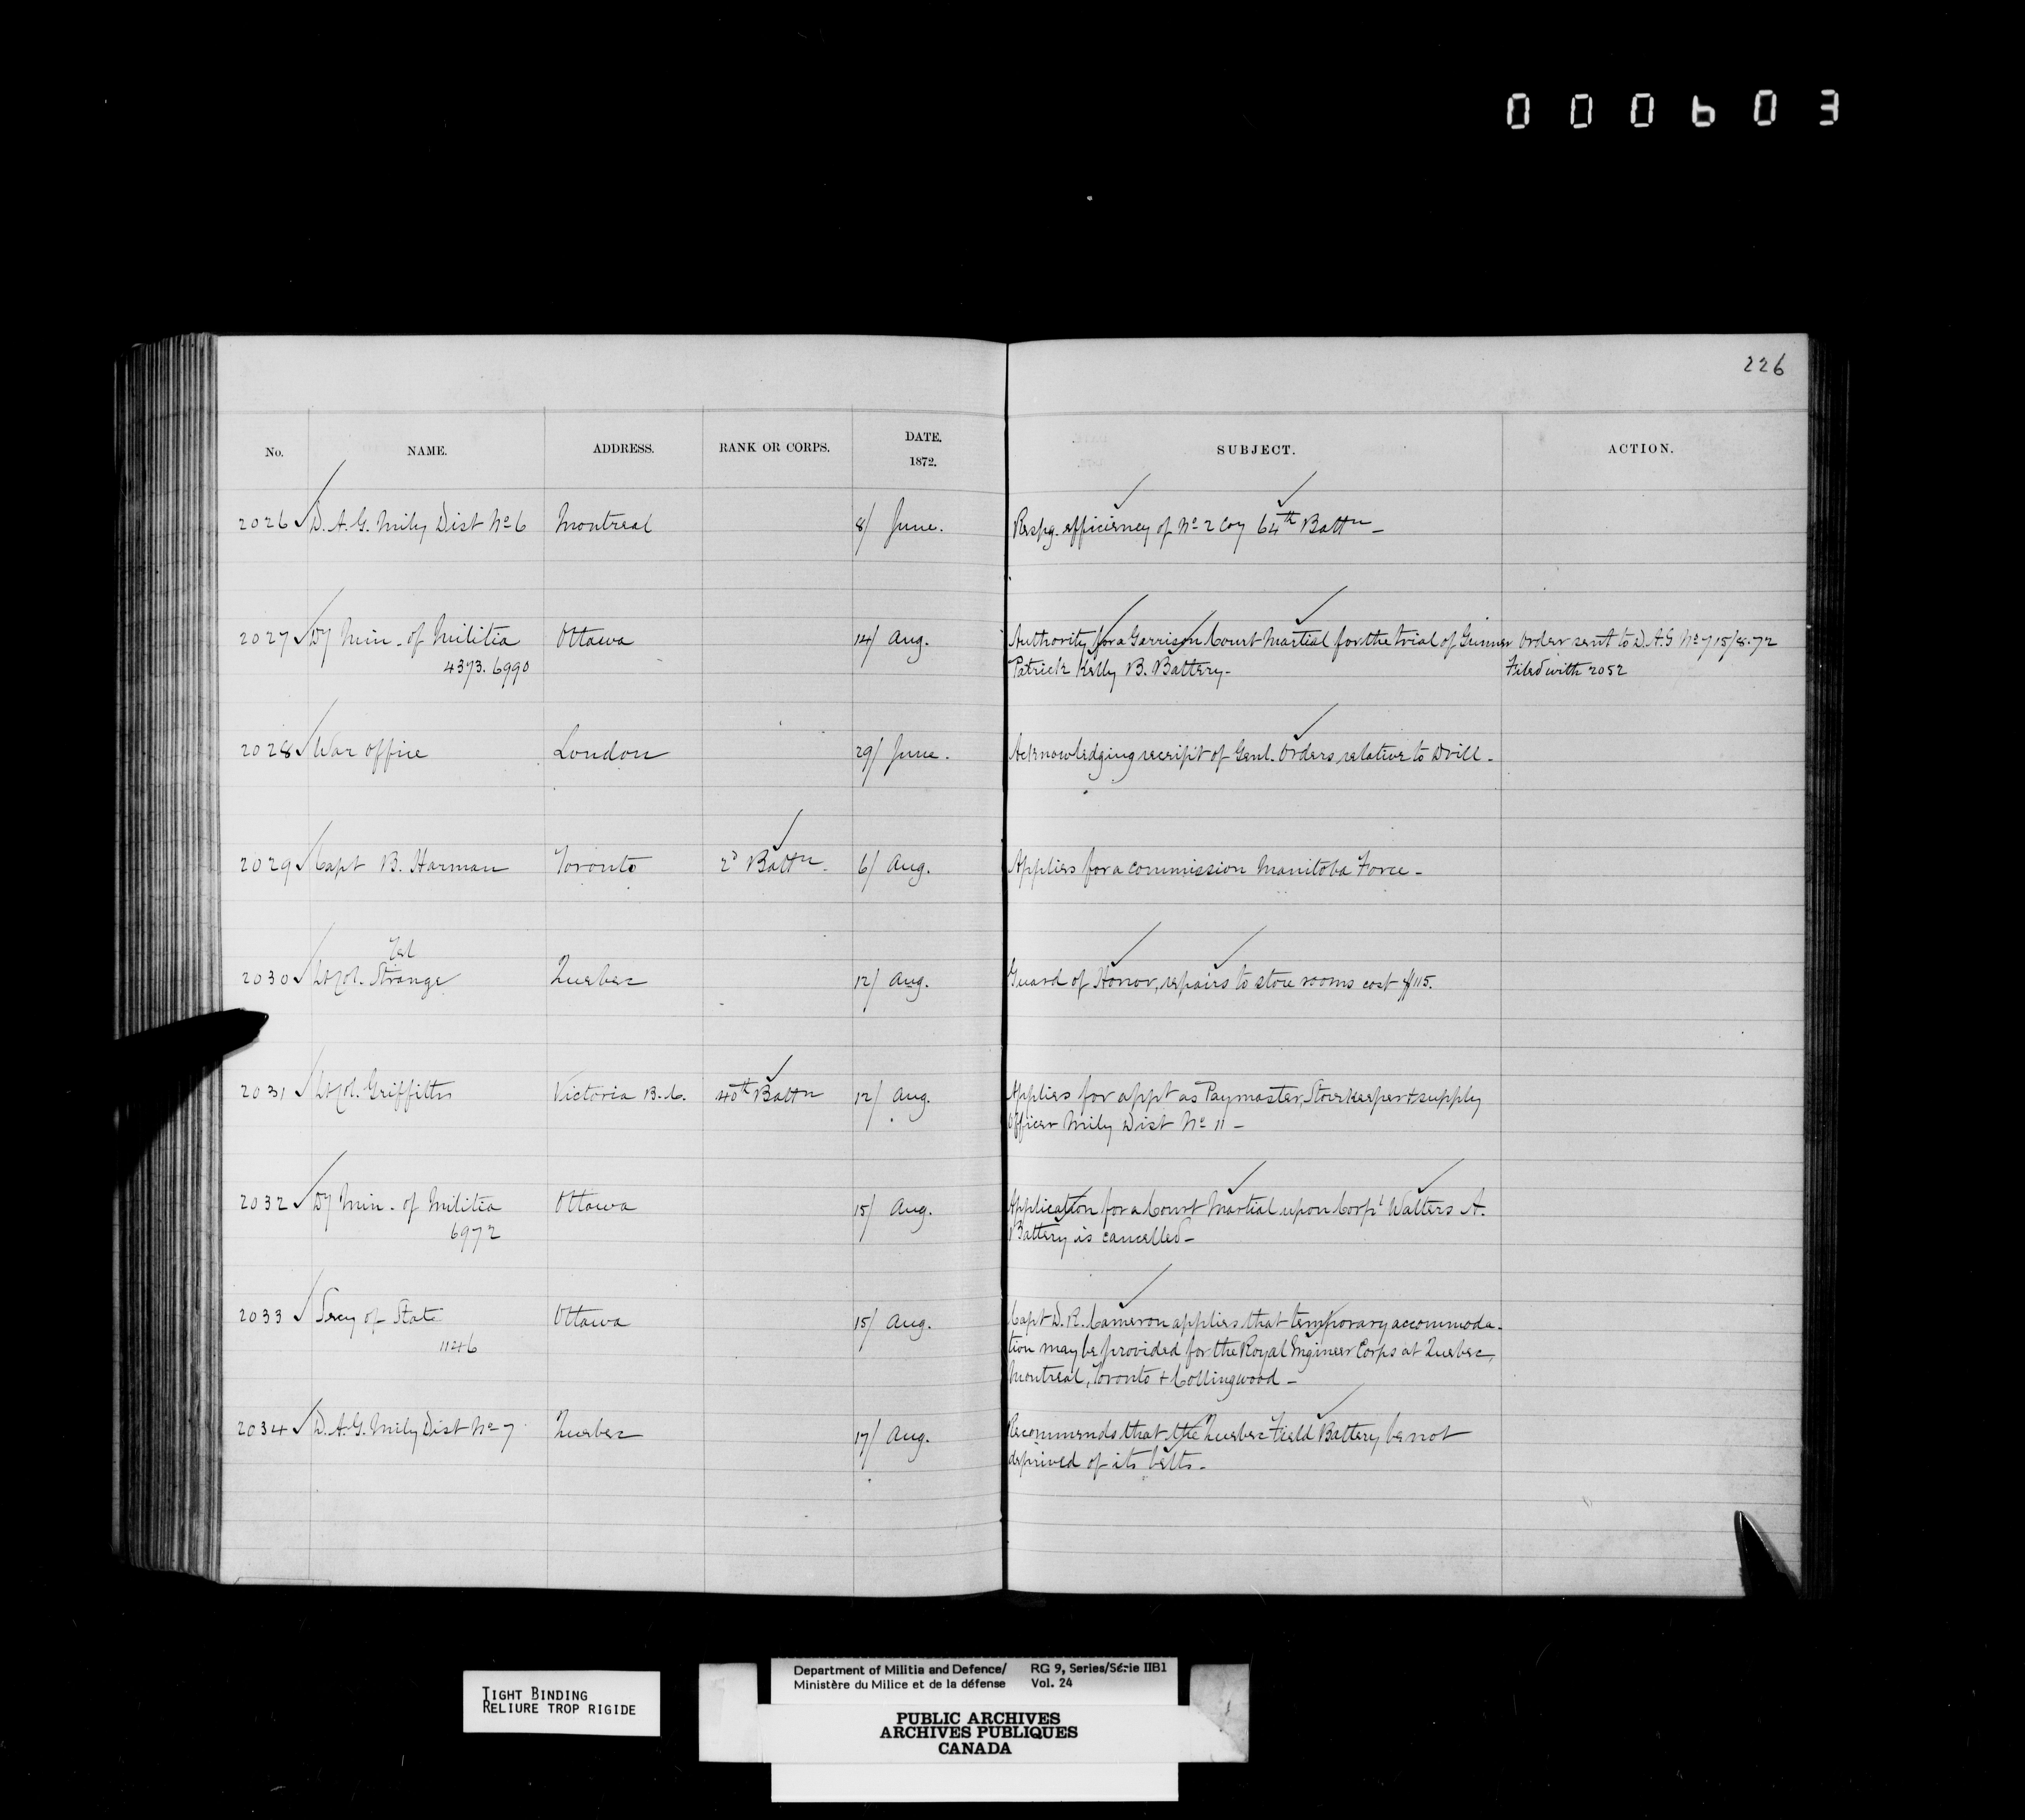 000603
226
No. NAME. ADDRESS. RANK OR CORPS. DATE. 1872. SUBJECT. ACTION.
2026 D. A. G. Mily Dist No 6 Montreal 8/ June. Respg. efficiency of No 2 Coy 64th Battn -
2027 Dy Min. of Militia Ottawa 14/ Aug. Authority for a Garrison Court Martial for the trial of Gunner Order sent to D.A.G No 7 15/8.72
4373. 6990 Patrick Kelly B. Battery. Filed with 2052
2028 War Office London 29/ June. Acknowledging receipt of Genl. Orders relative to Drill.
2029 Capt B. Harman Toronto 2d Battn. 6/ Aug. Applies for a commission Manitoba Force -
Tel
2030 Lt Col. Strange Quebec 12/ Aug. Guard of Honor, repairs to store rooms cost $115.
2031 Lt Col. Griffiths Victoria B.C. 40th Battn 12/ Aug. Applies for appt as Paymaster, Storekeeper & supply
officer Mily Dist No 11 -
2032 Dy Min. of Militia Ottawa 15/ Aug. Application for a Court Martial upon Corpl Walters A.
6972 Battery is cancelled -
2033 Secy of State Ottawa 15/ Aug. Capt D. R. Cameron applies that temporary accommoda-
1146 tion may be provided for the Royal Engineer Corps at Quebec,
Montreal, Toronto & Collingwood -
2034 D. A. G. Mily Dist No 7 Quebec 17/ Aug. Recommends that the Quebec Field Battery be not
deprived of its belts.
TIGHT BINDING
RELIURE TROP RIGIDE
Department of Militia and Defence/ RG 9, Series/Série IIB1
Ministère du Milice et de la défense Vol. 24
PUBLIC ARCHIVES
ARCHIVES PUBLIQUES
CANADA